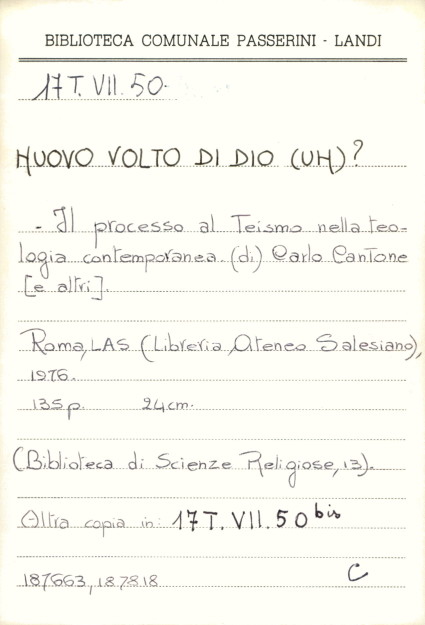 BIBLIOTECA COMUNALE PASSERINI - LANDI
17 T. VII. 50.
NUOVO VOLTO DI DIO (UN)?
- Il processo al Teismo nella teo-
logia contemporanea. (di) Carlo Cantone
[e altri].
Roma, LAS (Libreria Ateneo Salesiano),
1976.
135 p. 24 cm.
(Biblioteca di Scienze Religiose, 13).
Altra copia in: 17 T. VII. 50 bis
187663, 187818 C